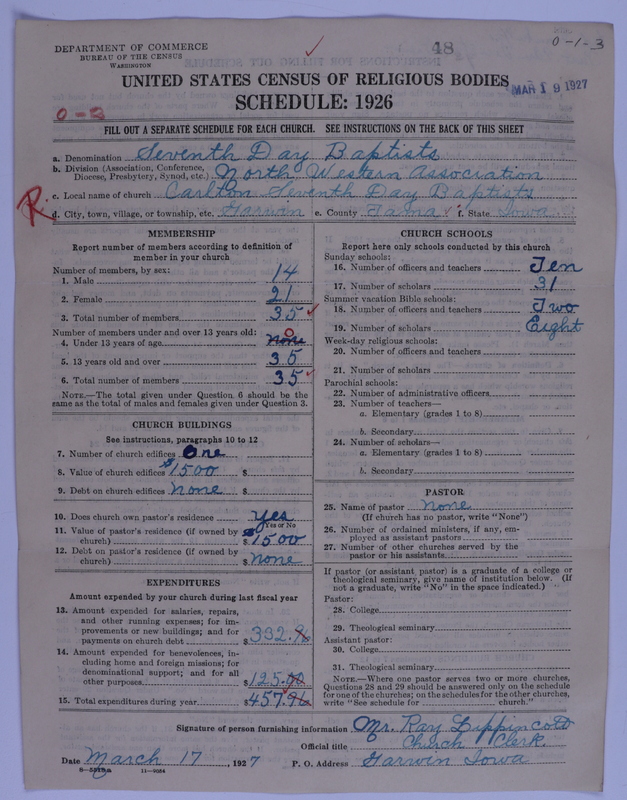 DEPARTMENT OF COMMERCE
BUREAU OF THE CENSUS
WASHINGTON
48
0-1-3
MAR 19 1927
UNITED STATES CENSUS OF RELIGIOUS BODIES
SCHEDULE: 1926
FILL OUT A SEPARATE SCHEDULE FOR EACH CHURCH. SEE INSTRUCTIONS ON THE BACK OF THIS SHEET
a. Denomination Seventh Day Baptists
b. Division (Association, Conference, Diocese, Presbytery, Synod, etc.) North Western Association
c. Local name of church Carlton Seventh Day Baptists
R.
d. City, town, village, or township, etc. Garwin e. County Tama f. State Iowa
MEMBERSHIP
Report number of members according to definition of
member in your church
Number of members, by sex:
1. Male 14
2. Female 21
3. Total number of members 35
Number of members under and over 13 years old:
4. Under 13 years of age none 0
5. 13 years old and over 35
6. Total number of members 35
NOTE.—The total given under Question 6 should be the
same as the total of males and females given under Question 3.
CHURCH BUILDINGS
See instructions, paragraphs 10 to 12
7. Number of church edifices One
8. Value of church edifices $1500 $
9. Debt on church edifices none $
10. Does church own pastor's residence yes
Yes or No
11. Value of pastor's residence (if owned by
church) $1500
12. Debt on pastor's residence (if owned by
church) $ none
EXPENDITURES
Amount expended by your church during last fiscal year
13. Amount expended for salaries, repairs,
and other running expenses; for im-
provements or new buildings; and for
payments on church debt $ 332.96
14. Amount expended for benevolences, in-
cluding home and foreign missions; for
denominational support; and for all
other purposes $ 125.00
15. Total expenditures during year $ 457.96
CHURCH SCHOOLS
Report here only schools conducted by this church
Sunday schools:
16. Number of officers and teachers Ten
17. Number of scholars 31
Summer vacation Bible schools:
18. Number of officers and teachers Two
19. Number of scholars Eight
Week-day religious schools:
20. Number of officers and teachers
21. Number of scholars
Parochial schools:
22. Number of administrative officers
23. Number of teachers—
a. Elementary (grades 1 to 8)
b. Secondary
24. Number of scholars—
a. Elementary (grades 1 to 8)
b. Secondary
PASTOR
25. Name of pastor none
(If church has no pastor, write "None")
26. Number of ordained ministers, if any, em-
ployed as assistant pastors
27. Number of other churches served by the
pastor or his assistants
If pastor (or assistant pastor) is a graduate of a college or
theological seminary, give name of institution below. (If
not a graduate, write "No" in the space indicated.)
Pastor:
28. College
29. Theological seminary
Assistant pastor:
30. College
31. Theological seminary
NOTE.—Where one pastor serves two or more churches,
Questions 28 and 29 should be answered only on the schedule
for one of the churches; on the schedules for the other churches,
write "See schedule for church."
Signature of person furnishing information Mr. Ray Lippincott
Official title Church Clerk.
Date March 17, 1927 P. O. Address Garwin Iowa
11—9084